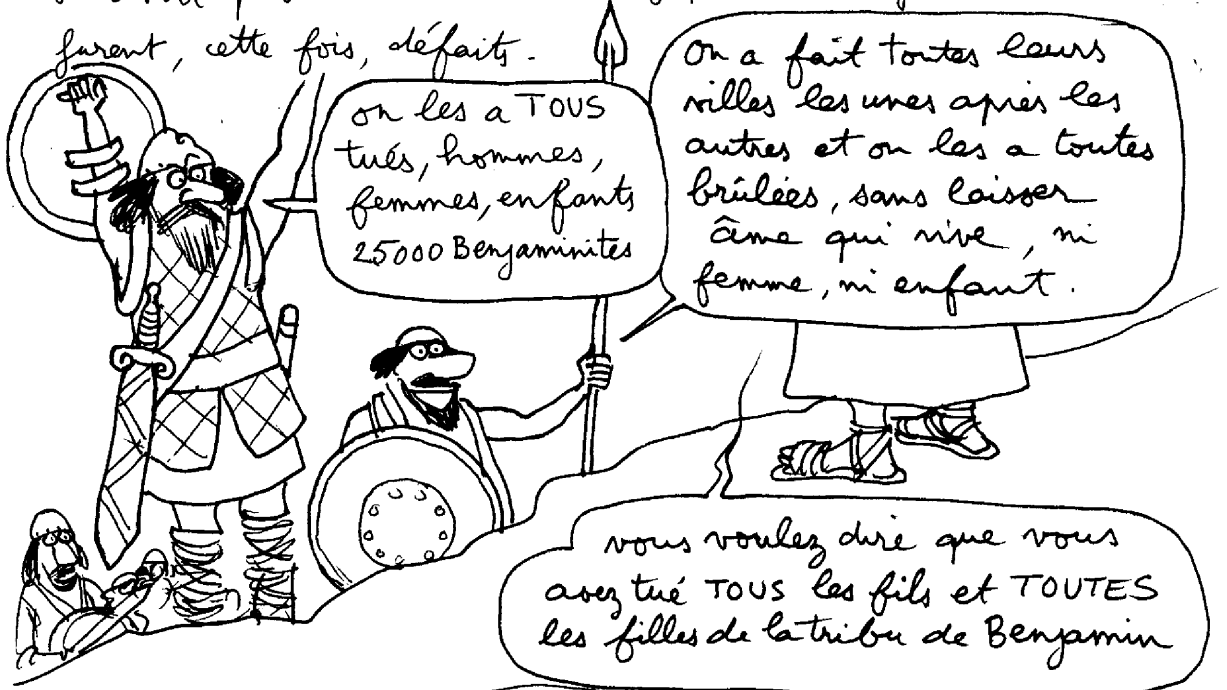 furent, cette fois, défaits.
on les a TOUS
tués, hommes,
femmes, enfants
25000 Benjaminites
on a fait toutes leurs
villes les unes après les
autres et on les a toutes
brûlées, sans laisser
âme qui vive, ni
femme, ni enfant.
vous voulez dire que vous
avez tué TOUS les fils et TOUTES
les filles de la tribu de Benjamin